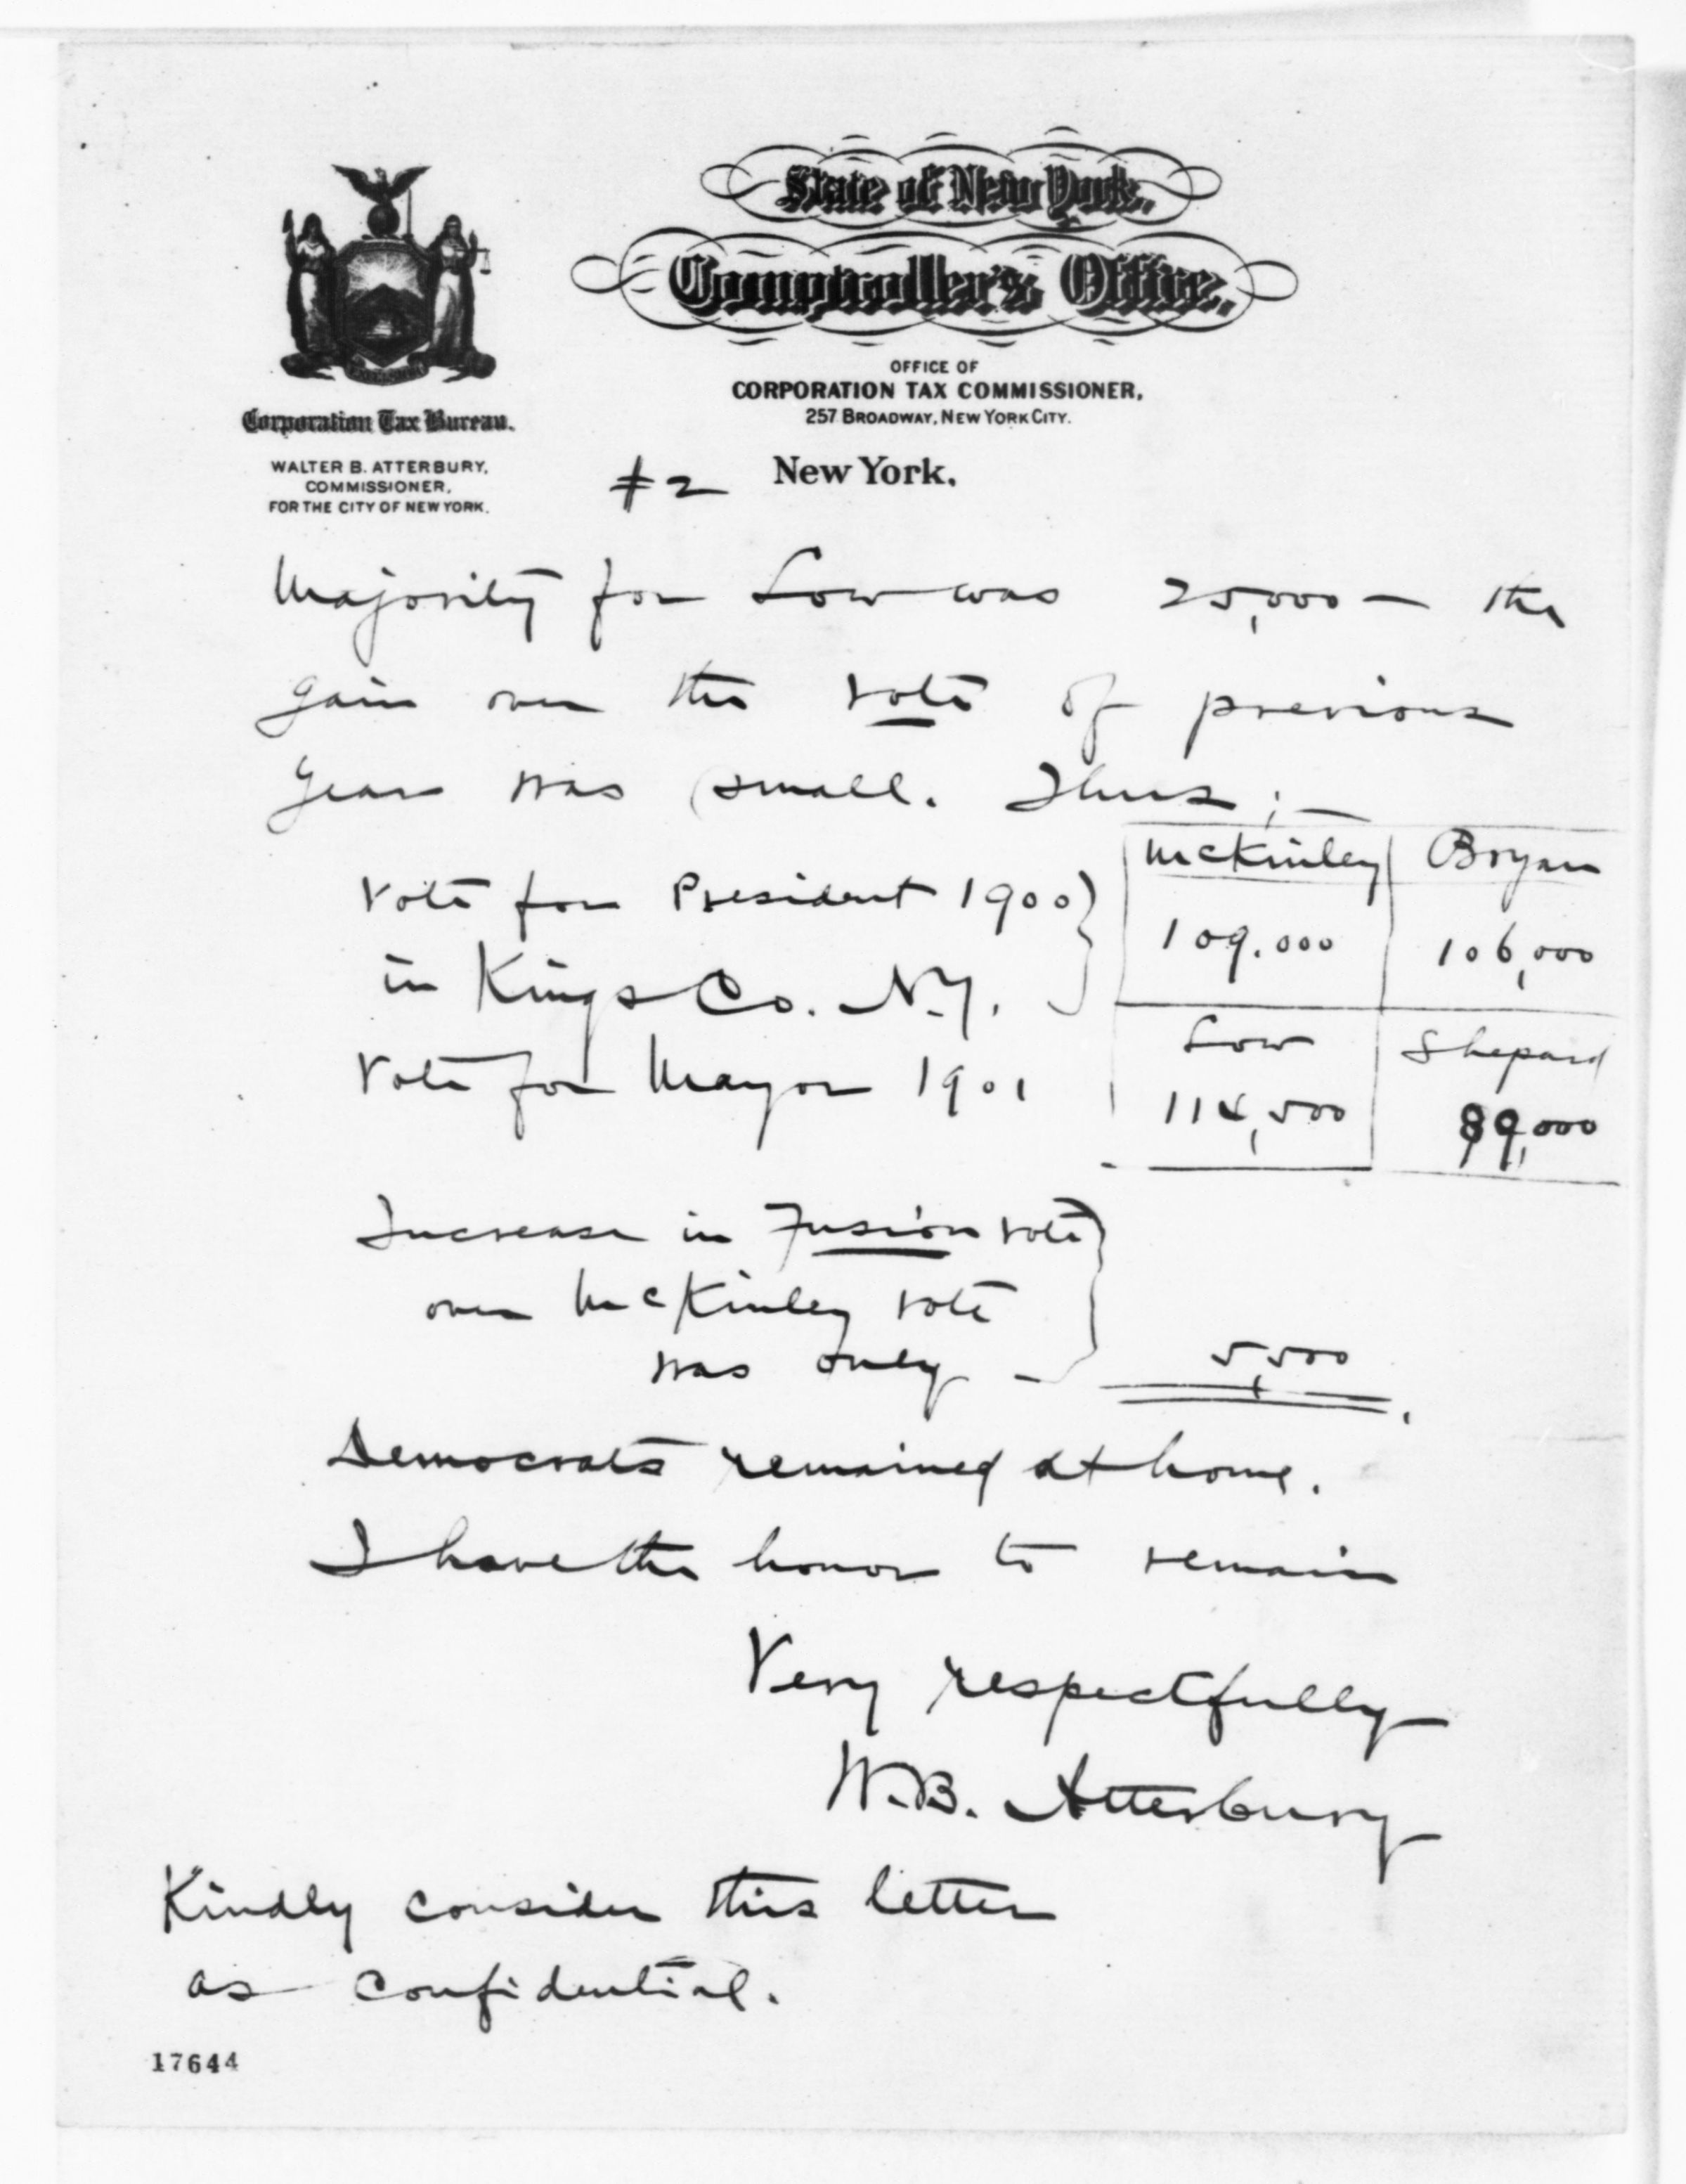 State of New York.
Comptroller's Office.
OFFICE OF
CORPORATION TAX COMMISSIONER,
257 BROADWAY, NEW YORK CITY.
Corporation Tax Bureau.
WALTER B. ATTERBURY,
COMMISSIONER,
FOR THE CITY OF NEW YORK.
#2 New York.
Majority for Low was 25,000 — the
gain over the vote of previous
year was small. Thus:—
McKinley Bryan
Vote for President 1900
109.000 106,000
in Kings Co. N.Y.
Low Shepard
Vote for Mayor 1901
114,500 89,000
Increase in Fusion vote
over McKinley vote
was only — 5,500.
Democrats remained at home.
I have the honor to remain
Very respectfully
W.B. Atterbury
Kindly consider this letter
as confidential.
17644